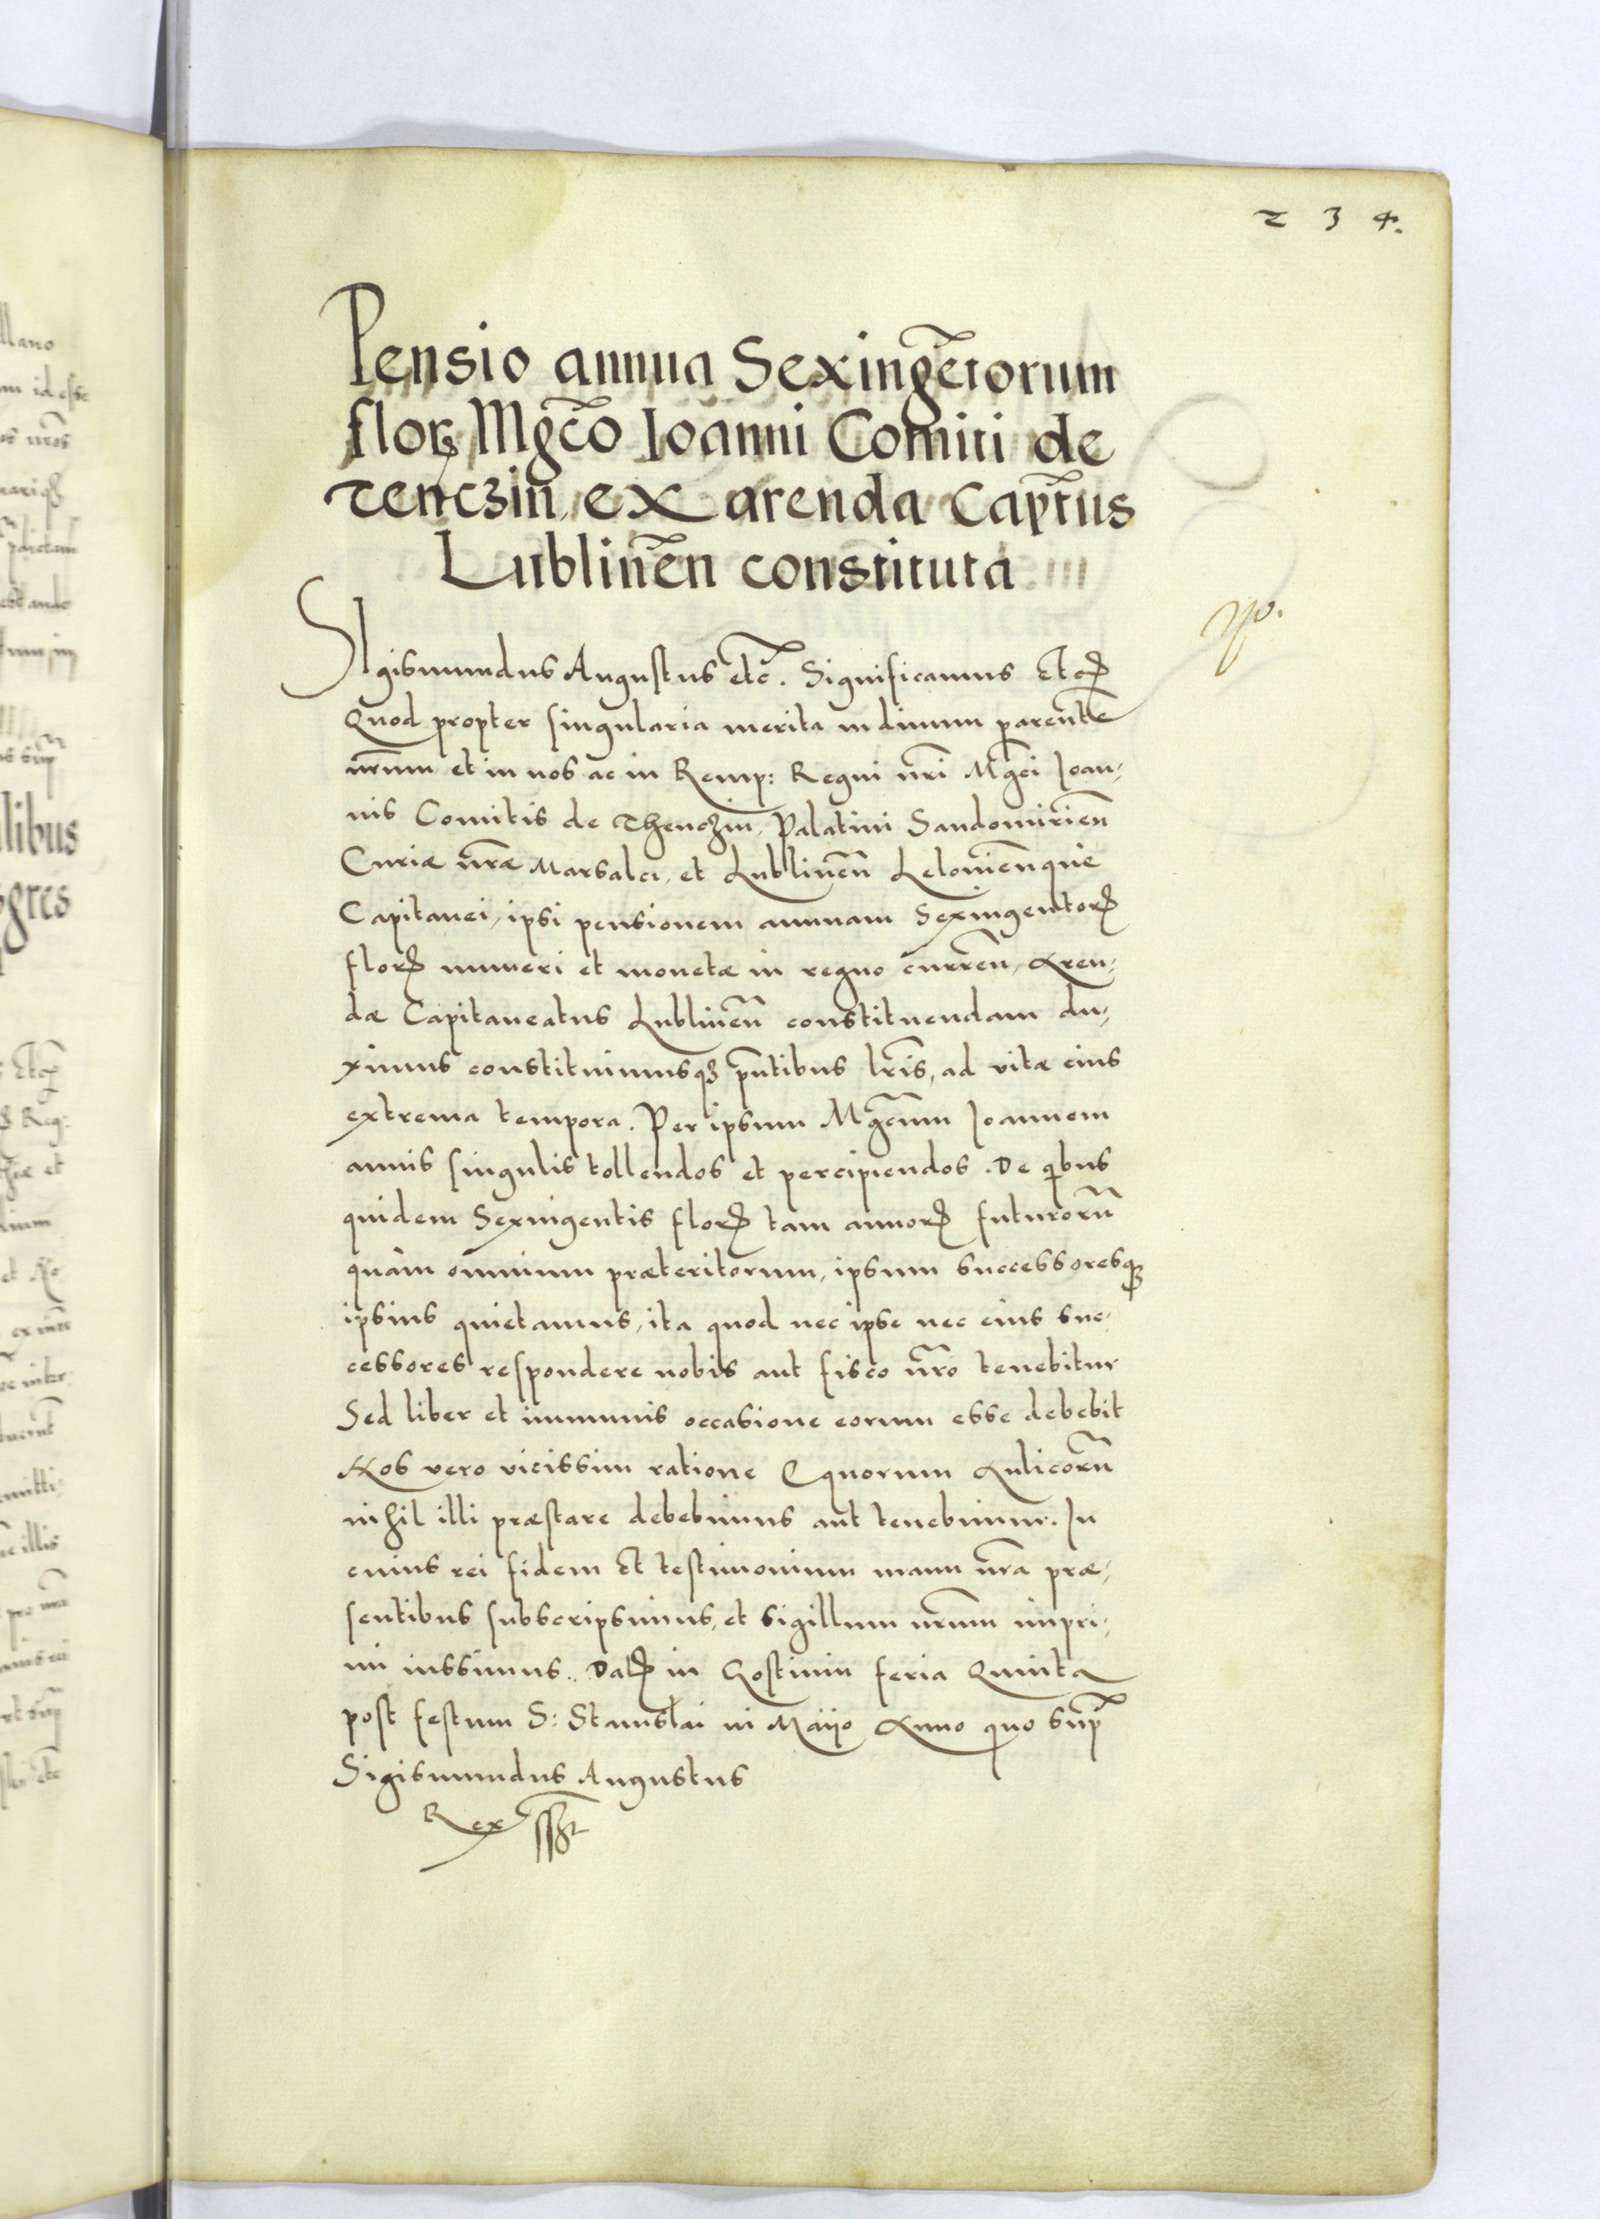 2 3 4.
Pensio annua Sexingẽtorum
floꝝ Mgc̃o Ioanni Comiti de
Tenczin, ex arenda Cap̃tus
Lublineñ constituta
SIgismundus Augustus etc̃. Significamus Etcꝝ
Quod propter singularia merita in diuum parentẽ
nr̃um et in nos ac in Remp: Regni nr̃i Mgc̃i Ioan,
nis Comitis de Thenczin, Palatini Sandomirieñ
Curiæ nr̃æ Marsalci, et Lublineñ Lelouieñque
Capitanei, ipsi pensionem annuam Sexingentoꝝ
floꝝ numeri et monetæ in regno curreñ, Aren,
dæ Capitaneatus Lublineñ constituendam du,
ximus constituimusqꝫ pñtibus lr̃is, ad vitæ eius
extrema tempora. Per ipsum Mgc̃um Ioannem
annis singulis tollendos et percipiendos. De qibus
quidem Sexingentis floꝝ tam annoꝝ futurorũ
quàm omnium præteritorum, ipsum successoresqꝫ
ipsius quietamus, ita quod nec ipse nec eius suc,
cessores respondere nobis aut fisco nr̃o tenebitur
Sed liber et immunis occasione eorum esse debebit
Nos vero vicissim ratione Equorum Aulicorũ
nihil illi præstare debebimus aut tenebimur. In
cuius rei fidem Et testimonium manu nr̃a præ,
sentibus subscripsimus, et sigillum nr̃um impri,
mi iussimus. Datꝝ in Gostinin feria Quinta
post festum S: Stanislai in Maijo Anno quo sup̃
Sigismundus Augustus
Rex sst